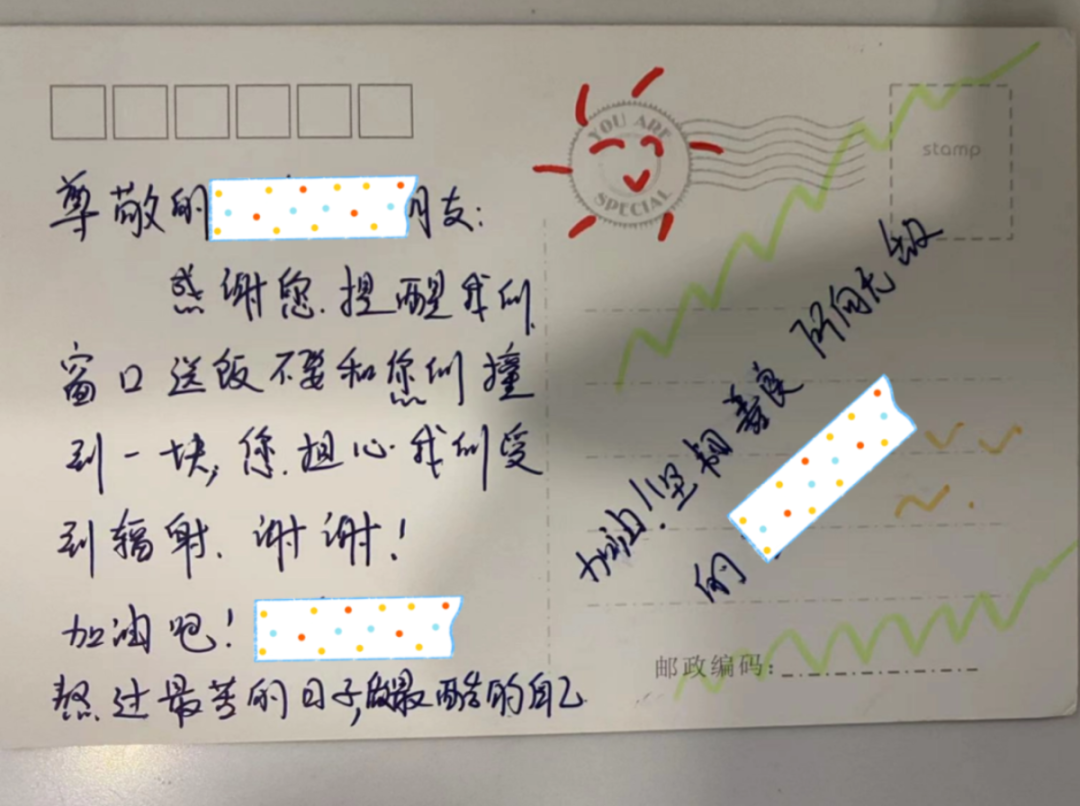 尊敬的 朋友：
感谢您.提醒我们
窗口送饭不要和您们撞
到一块，您.担心我们受
到辐射.谢谢！
加油吧！
熬过最苦的日子，做最酷的自己
YOU ARE
SPECIAL
stamp
加油！坚韧善良 所向无敌
的
邮政编码：